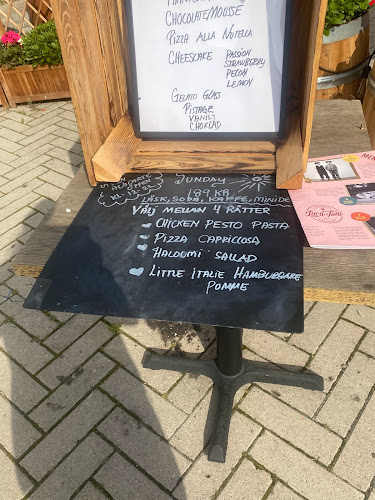 CHOCOLATE/MOUSSE
PIZZA ALLA NUTELLA
CHEESCAKE PASSION
STRAWBERRY
PECON
LEMON
GELATO GLAS
PISTAGE
VANILJ
CHOKLAD
SUNDAY
199 KR
LÄSK, SODA, KAFFE, MINIDE
VÄLJ MELLAN 4 RÄTTER
CHICKEN PESTO PASTA
PIZZA CAPPICCOSA
HALOOMI SALLAD
LITTLE ITALIE HAMBURGARE
POMME